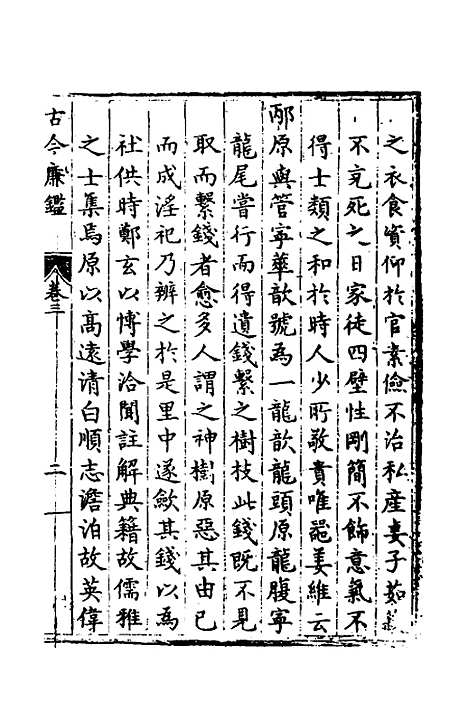 之衣食資仰於官素儉不治私產妻子茹
不充死之日家徒四壁性剛簡不飾意氣不
得士類之和於時人少所敬貴唯噐姜維云
邴原與管寧華歆號為一龍歆龍頭原龍腹寧
龍尾嘗行而得遺錢繫之樹枝此錢既不見
取而繫錢者愈多人謂之神樹原惡其由已
而成淫祀乃辨之於是里中遂歛其錢以為
社供時鄭玄以博學洽聞註解典籍故儒雅
之士集焉原以高遠清白順志澹泊故英偉
古今廉鑑
卷三
二